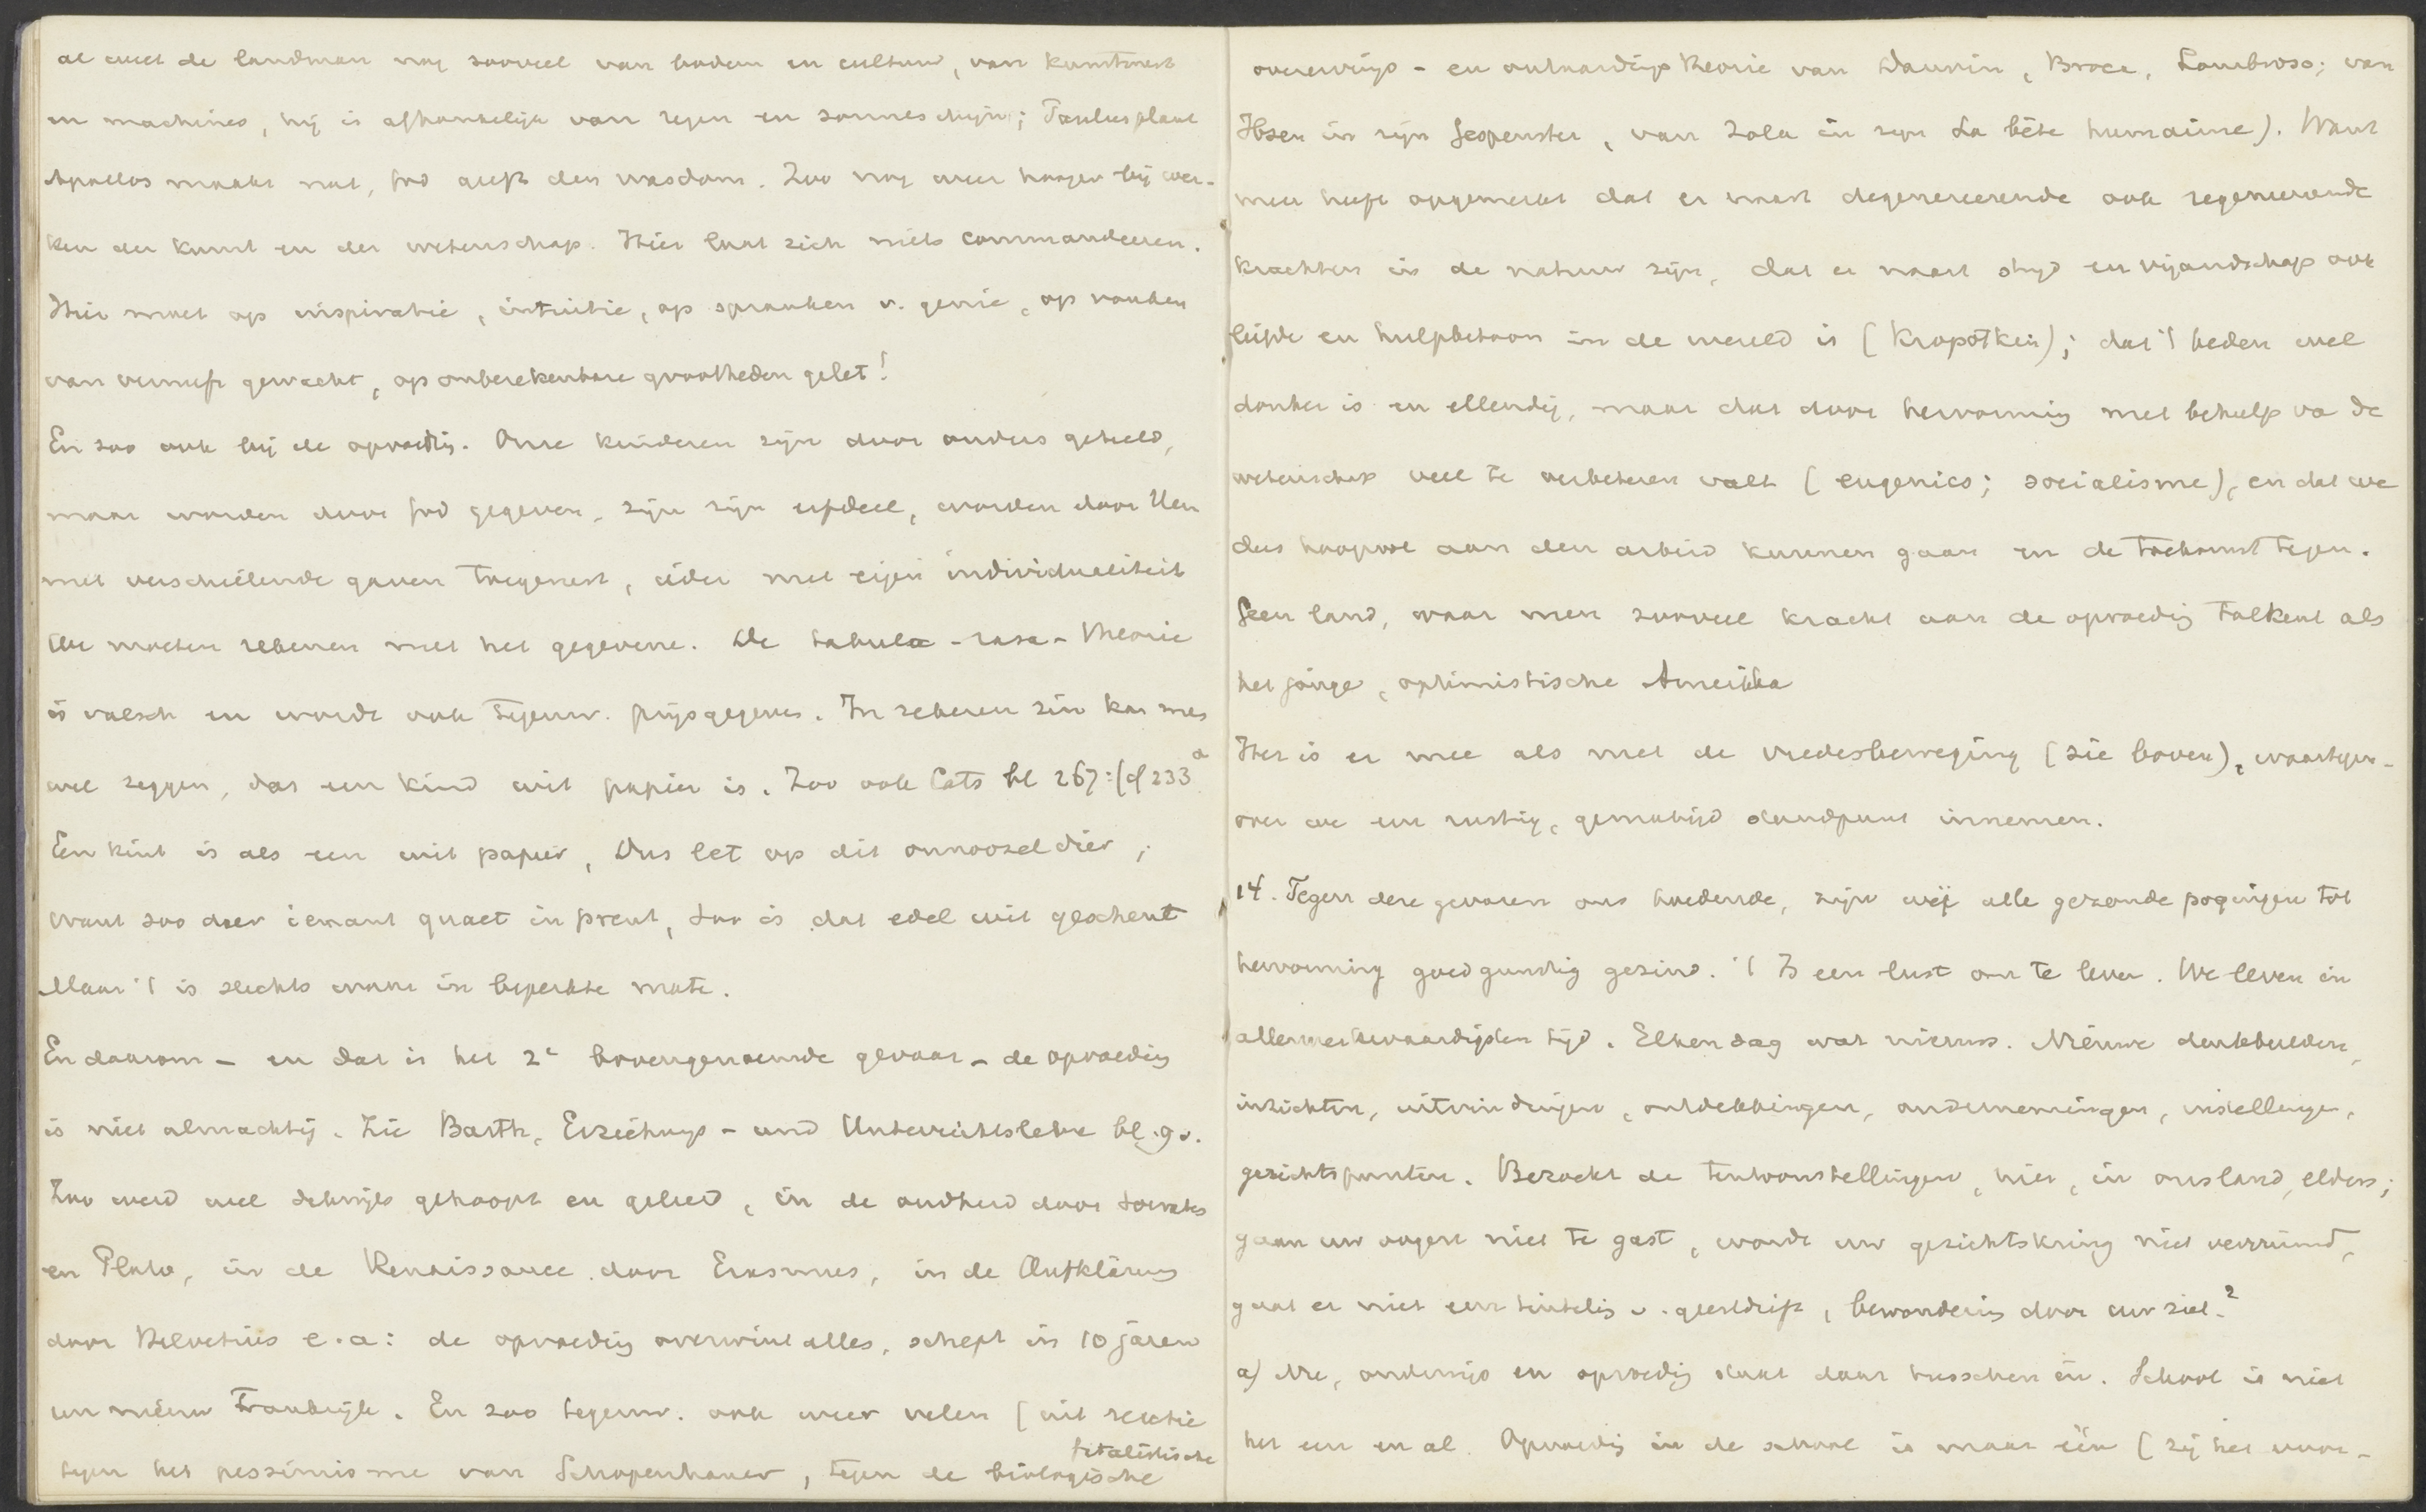 al weet de landman nog zooveel van bodem en cultuur, van kunstmest
en machines, hij is afhankelijk van regen en zonneschijn; Paulus plant
Apollos maakt nat, God geeft den wasdom. Zoo nog weer hooger bij wer-
ken der kunst en der wetenschap. Hier laat zich niets commandeeren.
Hier moet op inspiratie, intuitie, op spranken v. genie, op vonken
van vernuft gewacht, op onberekenbare grootheden gelet!
En zoo ook bij de opvoedig. Onze kinderen zijn door ouders geteeld,
maar worden door God gegeven, zijn zijn erfdeel, worden door Hem
met verschillende gaven toegerust, ieder met eigen individualiteit
We moeten rekenen met het gegevene. De tabula-rasa-theorie
is valsch en wordt ook tegenw. prijsgegeven. In zekeren zin kan men
wel zeggen, dat een kind wit papier is. Zoo ook Cats bl 267: (cf 233a
Een kint is als een wit papier, Dus let op dit onnoozel dier;
Want zoo daer iemant quaet in prent, Soo is dat edel wit geschent
Maar 't is slechts waar in beperkte mate.
En daarom - en dat is het 2e bovengenoemde gevaar - de opvoedig
is niet almachtig. Zie Barth, Erziehungs- und Unterrichtslehre bl. 9v.
Zoo werd wel dikwijls gehoopt en geleerd, in de oudheid door Socrates
en Plato, in de Renaissance door Erasmus, in de Aufklärung
door Helvetius e.a: de opvoedig overwint alles, schept in 10 jaren
een nieuw Frankrijk. En zoo tegenw. ook weer velen (uit reactie
tegen het pessimisme van Schopenhauer, tegen de fatalistische biologische
overervings- en ontaardings theorie van Darwin, Broca, Lombroso; van
Ibsen in zijn Gespenster, van Zola in zijn La bête humaine). Want
men heeft opgemerkt dat er naast degenereerende ook regenereerende
krachten in de natuur zijn, dat er naast strijd en vijandschap ook
liefde en hulpbetoon in de wereld is (Kropotkin); dat 't heden wel
donker is en ellendig, maar dat door hervorming met behulp va de
wetenschap veel te verbeteren valt (eugenics; socialisme), en dat we
dus hoopvol aan den arbeid kunnen gaan en de toekomst tegen.
Geen land, waar men zooveel kracht aan de opvoedig toekent als
het jonge, optimistische Amerika
Het is er mee als met de vredesbeweging (zie boven), waartegen-
over we een rustig, gematigd standpunt innemen.
14. Tegen deze gevaren ons hoedende, zijn wij alle gezonde pogingen tot
hervorming goedgunstig gezind. 't Is een lust om te leven. We leven in
allermerkwaardigsten tijd. Elken dag wat nieuws. Nieuwe denkbeelden,
inzichten, uitvindingen, ontdekkingen, ondernemingen, instellingen,
gezichtspunten. Bezoekt de tentoonstellingen, hier, in ons land, elders;
gaan uw oogen niet te gast, wordt uw gezichtskring niet verruimd,
gaat er niet een tinteling v. geestdrift, bewondering door uw ziel?
a) Nu, onderwijs en opvoedig staat daar tusschen in. School is niet
het een en al. Opvoedig in de school is maar één (zij het voor-